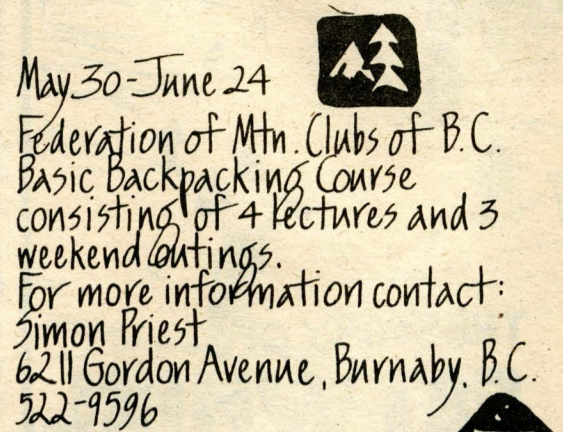 May 30-June 24
Federation of Mtn. Clubs of B.C.
Basic Backpacking Course
consisting of 4 lectures and 3
weekend outings.
For more information contact:
Simon Priest
6211 Gordon Avenue, Burnaby, B.C.
522-9596